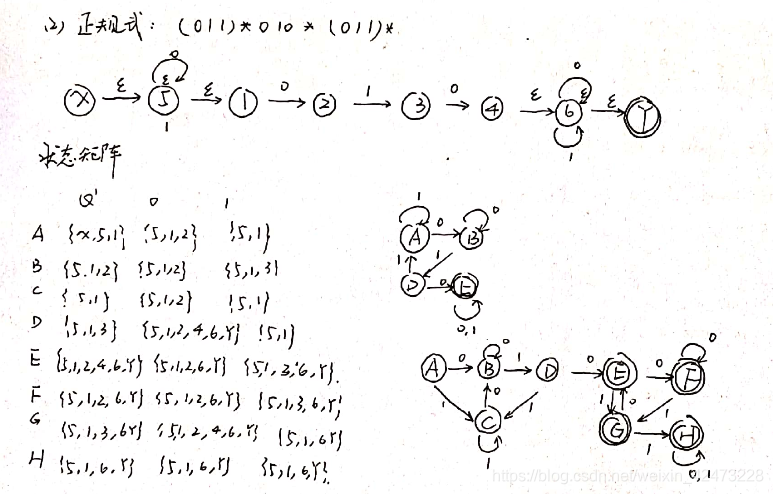 (2) 正规式: (0|1)*010*(0|1)*
0 0
X ε 5 ε ε 1 0 2 1 3 0 4 ε 6 ε ε Y
1 1
状态矩阵
Q' 0 1
A {x,5,1} {5,1,2} {5,1}
B {5,1,2} {5,1,2} {5,1,3}
C {5,1} {5,1,2} {5,1}
D {5,1,3} {5,1,2,4,6,Y} {5,1}
E {5,1,2,4,6,Y} {5,1,2,6,Y} {5,1,3,6,Y}
F {5,1,2,6,Y} {5,1,2,6,Y} {5,1,3,6,Y}
G {5,1,3,6Y} {5,1,2,4,6,Y} {5,1,6Y}
H {5,1,6,Y} {5,1,6,Y} {5,1,6,Y}
1 0
A 0 B
1 1
D 0 E
0,1
0 0
A 0 B 1 D 0 E 0 F
1 0 1 1 0 1
C G 1 H
1 0,1